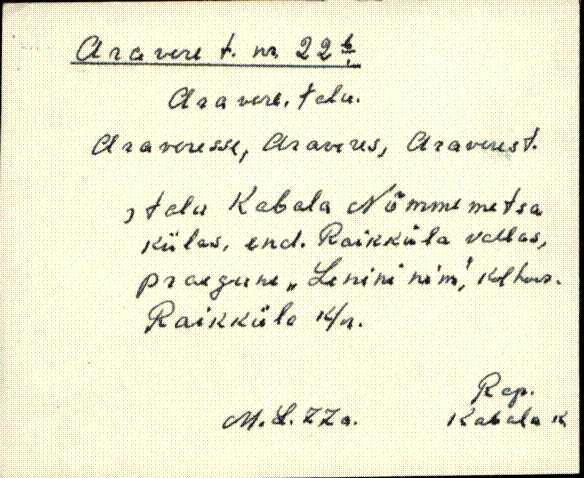 Aravere t. nr. 22 b.
Aravere, talu.
Araveresse, Araveres, Araverest.
, talu Kabala Nõmmemetsa
külas, end. Raikküla vallas,
praegune „Lenini nim", kolhoos.
Raikküla k/n.
Rap.
M.L. ZZa. Kabala k